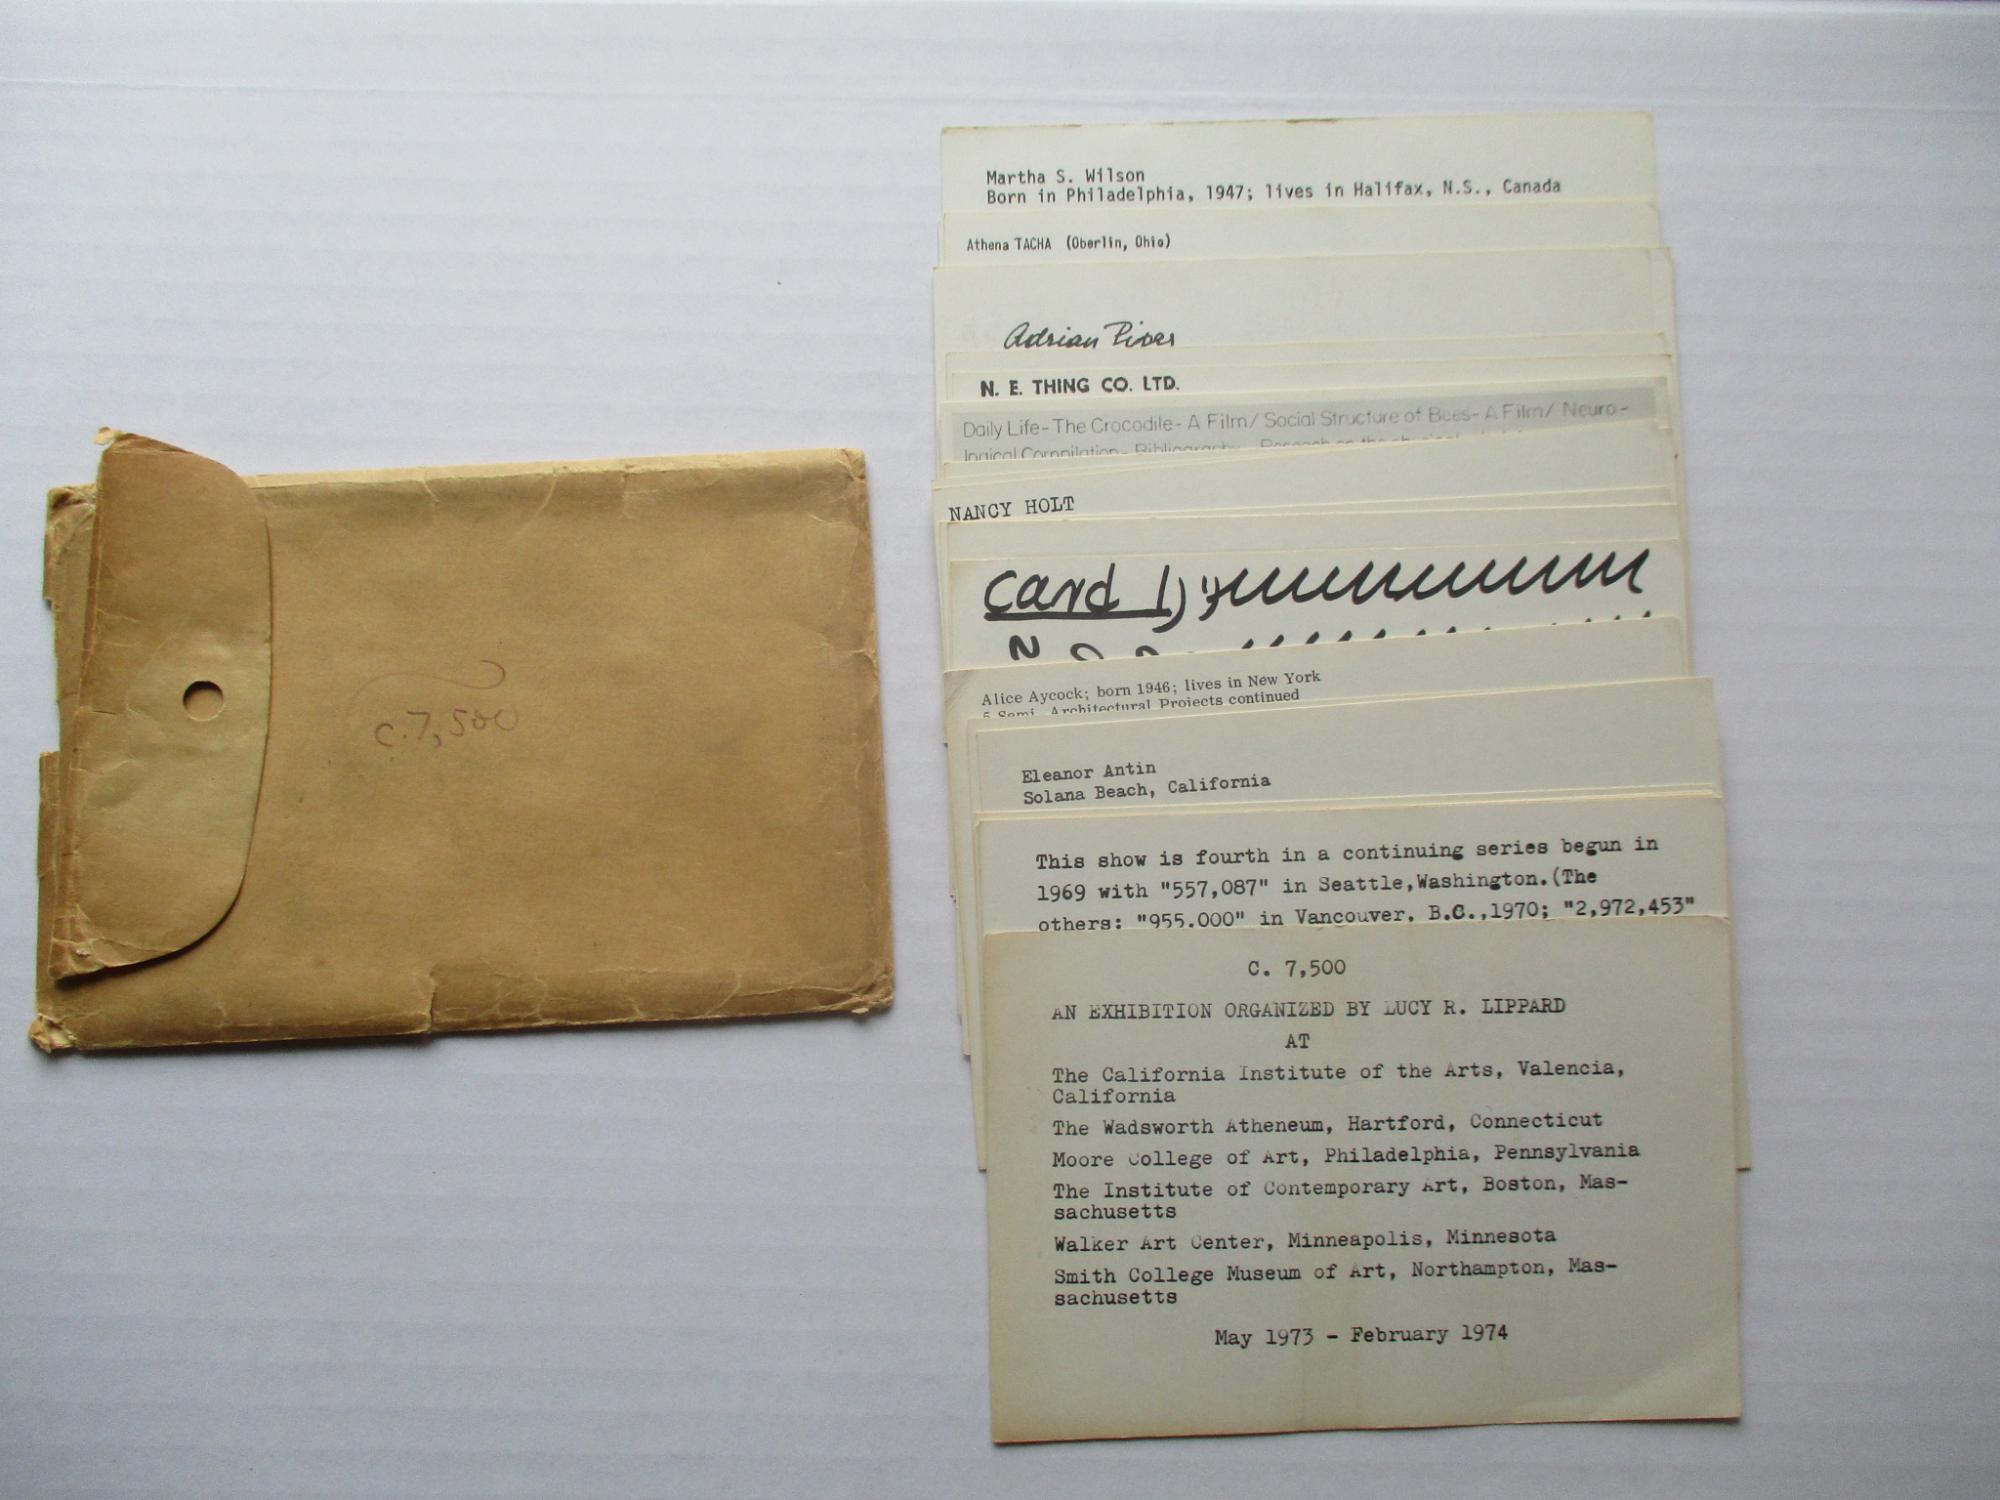 c.7,500
Martha S. Wilson
Born in Philadelphia, 1947; lives in Halifax, N.S., Canada
Athena TACHA (Oberlin, Ohio)
Adrian Piper
N. E. THING CO. LTD.
Daily Life-The Crocodile-A Film/ Social Structure of Bees-A Film/ Neuro-
logical Compilation- Bibliography- Research on the physical
NANCY HOLT
Card 1)
Alice Aycock; born 1946; lives in New York
5 Semi-Architectural Projects continued
Eleanor Antin
Solana Beach, California
This show is fourth in a continuing series begun in
1969 with "557,087" in Seattle,Washington.(The
others: "955.000" in Vancouver, B.C.,1970; "2,972,453"
C. 7,500
AN EXHIBITION ORGANIZED BY LUCY R. LIPPARD
AT
The California Institute of the Arts, Valencia,
California
The Wadsworth Atheneum, Hartford, Connecticut
Moore College of Art, Philadelphia, Pennsylvania
The Institute of Contemporary Art, Boston, Mas-
sachusetts
Walker Art Center, Minneapolis, Minnesota
Smith College Museum of Art, Northampton, Mas-
sachusetts
May 1973 - February 1974